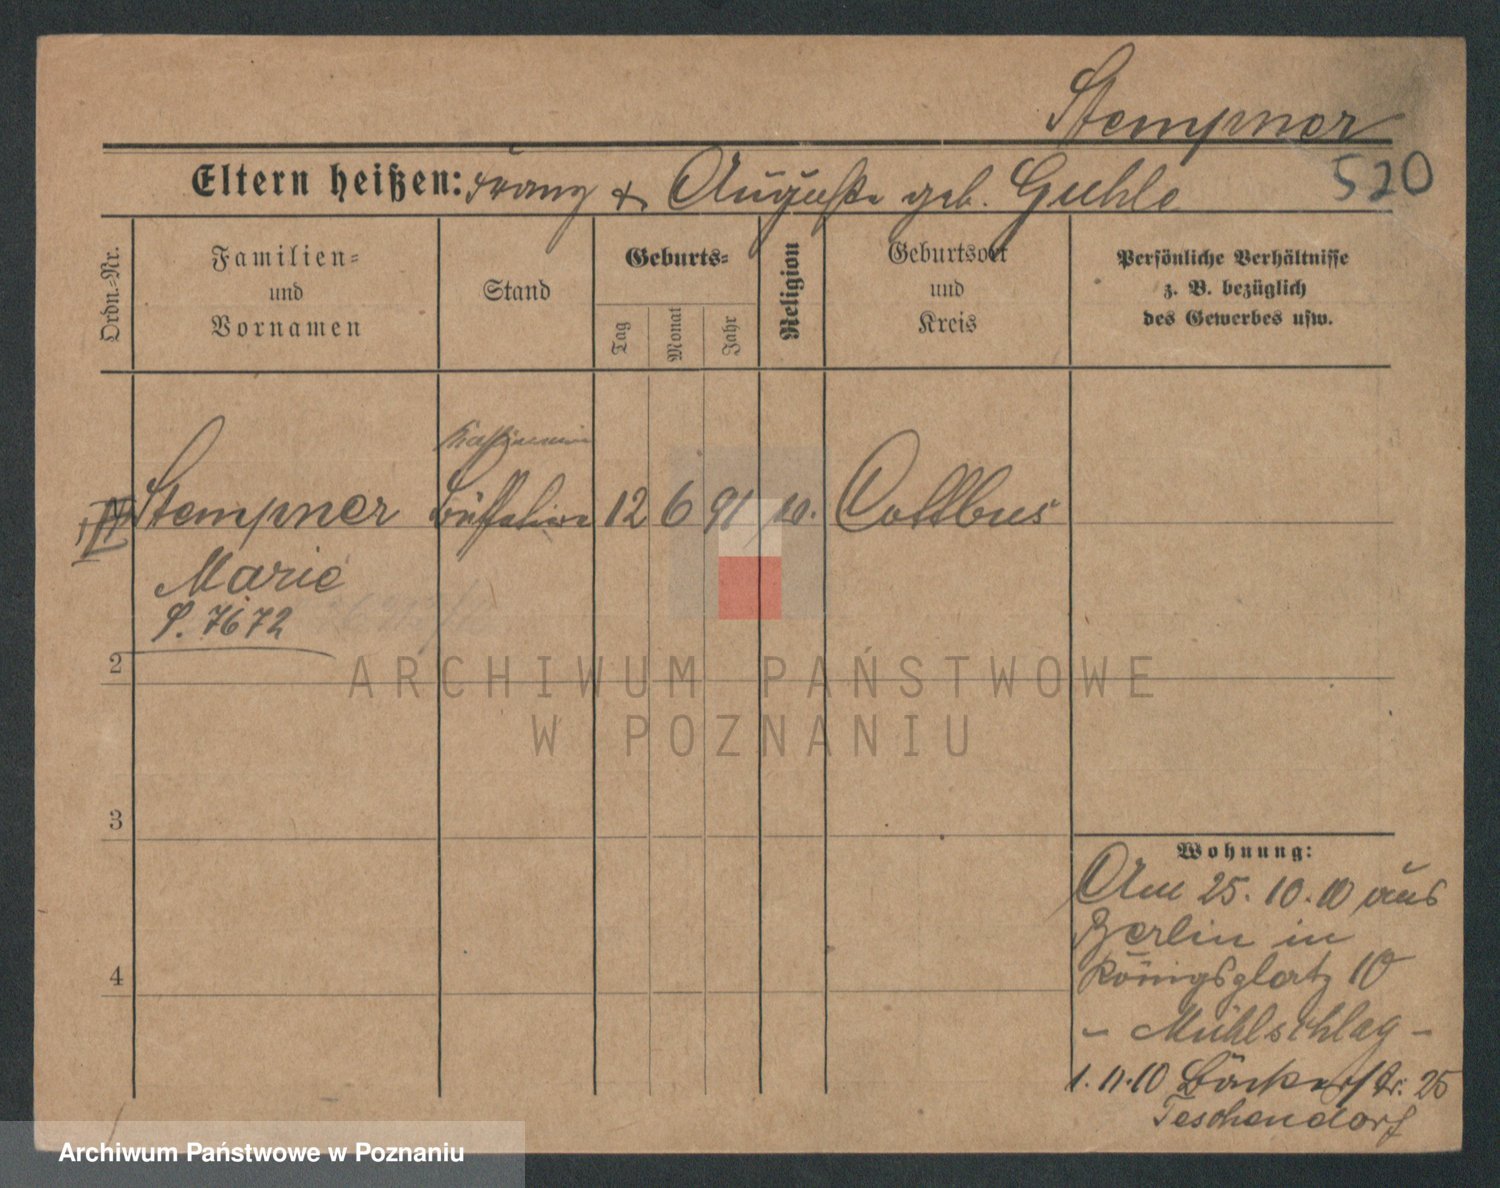 Stempner
520
Eltern heißen: Franz & Auguste geb. Guhle
Ordn.-Nr.
Familien-
und
Vornamen
Stand
Geburts-
Tag
Monat
Jahr
Religion
Geburtsort
und
Kreis
Persönliche Verhältnisse
z. B. bezüglich
des Gewerbes usw.
Stempner
12 6 91
Cottbus
Marie
P. 7672
2
ARCHIWUM PAŃSTWOWE
W POZNANIU
3
Wohnung:
Am 25.10.10 aus
Berlin in
Königsplatz 10
- Mühlschlag -
4
1.11.10 Bäckerstr. 25
Teschendorf
Archiwum Państwowe w Poznaniu